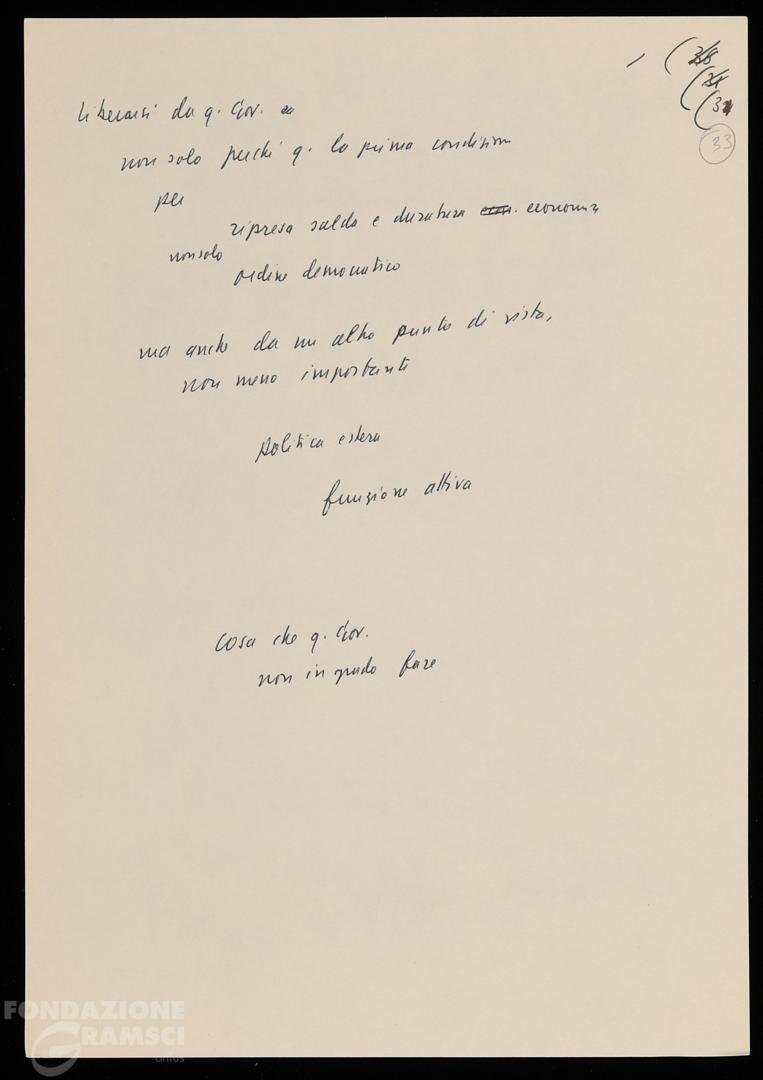 (38
(31
(31
33
liberarsi da q. Gov.
non solo perché q. la prima condizione
per
ripresa salda e duratura econ. economia
non solo
ordine democratico
ma anche da un altro punto di vista,
non meno importante
politica estera
funzione attiva
cosa che q. Gov.
non in grado fare
FONDAZIONE
GRAMSCI
onlus